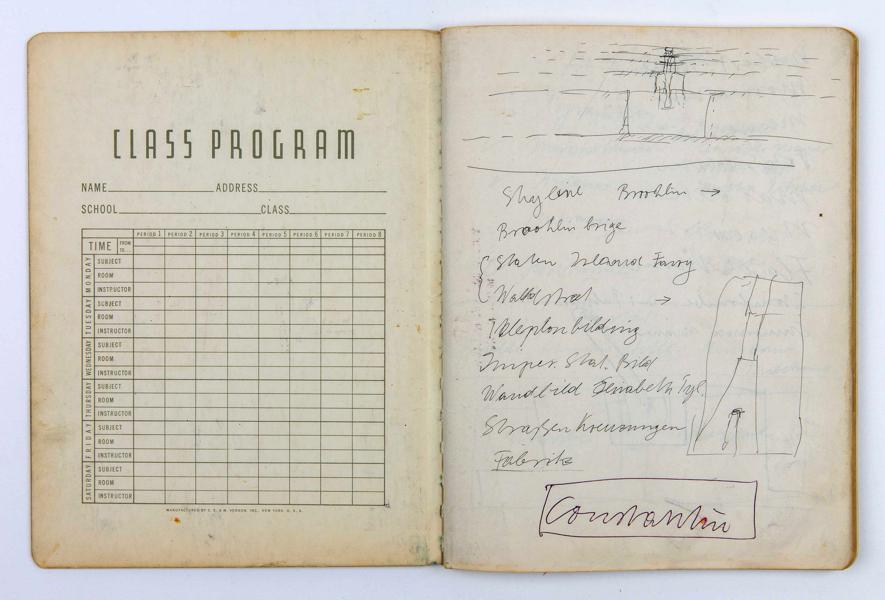 CLASS PROGRAM
NAME ADDRESS
SCHOOL CLASS
TIME FROM TO PERIOD 1 PERIOD 2 PERIOD 3 PERIOD 4 PERIOD 5 PERIOD 6 PERIOD 7 PERIOD 8
MONDAY
SUBJECT
ROOM
INSTRUCTOR
TUESDAY
SUBJECT
ROOM
INSTRUCTOR
WEDNESDAY
SUBJECT
ROOM
INSTRUCTOR
THURSDAY
SUBJECT
ROOM
INSTRUCTOR
FRIDAY
SUBJECT
ROOM
INSTRUCTOR
SATURDAY
SUBJECT
ROOM
INSTRUCTOR
MANUFACTURED BY S. E. & M. VERNON, INC., NEW YORK, U. S. A.
Skyline Brooklin →
Brooklin brige
Staten Island Farry
→
Telephonbilding
Imper. Stat. Bild
Wandbild Elisabeth
Straßen Kreuzungen
Fabrik
Constantin